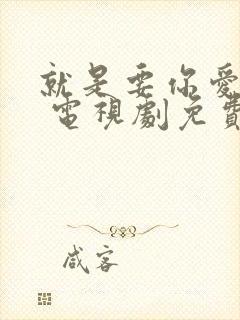 就是要你愛
電視劇免費
咸客